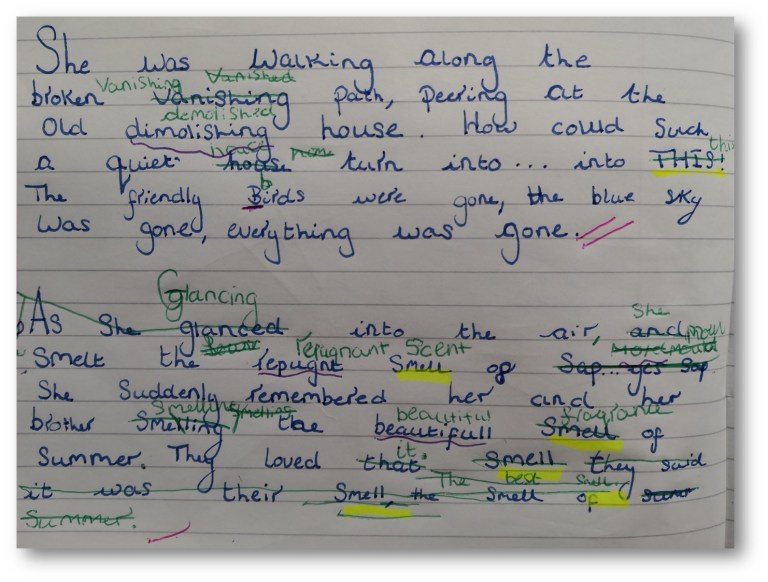 She was walking along the
Vanishing Vanished
broken Vanishing path, peering at the
demolished
Old dimolishing house. How could such
this
a quiet house turn into... into THIS!
b
The friendly Birds were gone, the blue sky
was gone, everything was gone.
Glancing
She
As She glanced into the air, and
repugnant Scent
Smelt the repugnt Smell of Sap...yes Sap
She Suddenly remembered her and her
Smelling Smelling beautiful fragrance
brother Smelling the beautifull Smell of
it.
Summer. They loved that Smell they said
The best Smell
it was their Smell, the Smell of
Summer.